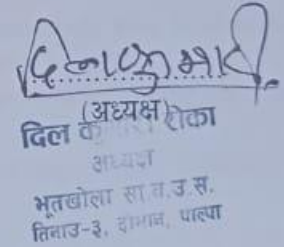 दिलकुमारी
(अध्यक्ष)
दिल कुमारी रोका
अध्यक्ष
भूतखोला सा.व.उ.स.
तिनाउ-३, दोभान, पाल्पा